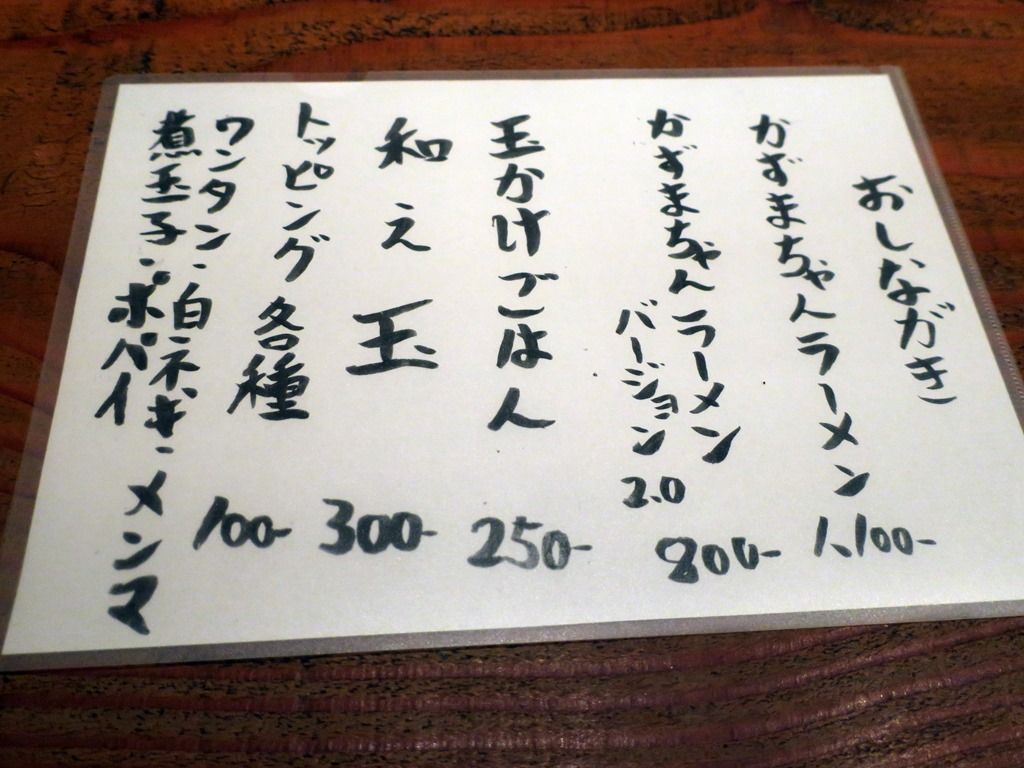 おしながき
かずまちゃんラーメン 1,100-
かずまちゃんラーメン
バージョン2.0 800-
玉かけごはん 250-
和え玉 300-
トッピング各種 100-
ワンタン・白ネギ・メンマ
煮玉子・ポパイ